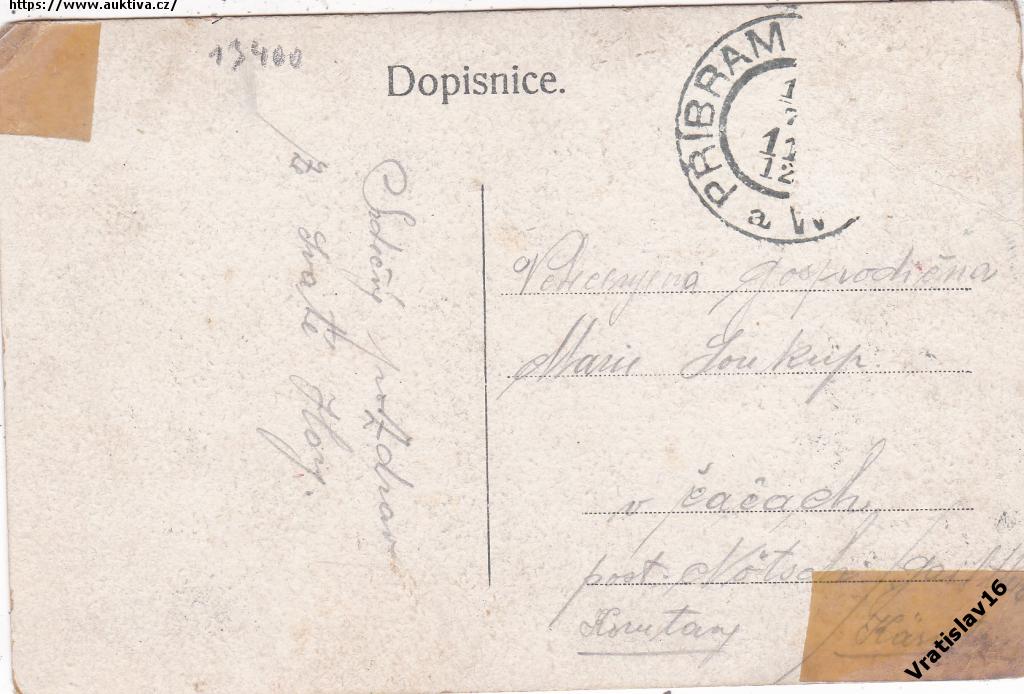 https://www.auktiva.cz/
13400
Dopisnice.
PŘÍBRAM
11
12
a
Srdečný pozdrav
z svaté Hory.
Velectěná Gospodična
Marie Soukup.
v Čačach
post. Nötsch
Korutany
Vratislav16